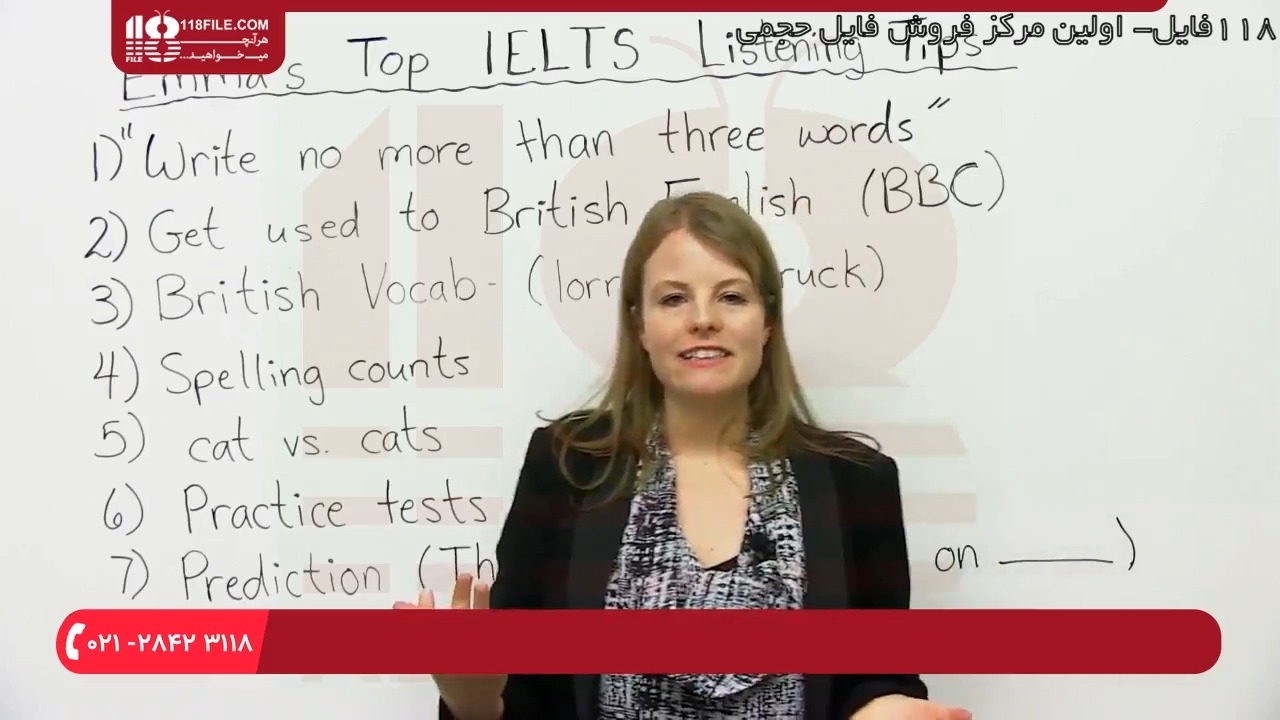 118FILE.COM
هرآنچه
میخواهید...
118
FILE
۱۱۸فایل- اولین مرکز فروش فایل حجمی
Emma's Top IELTS Listening Tips
1) "Write no more than three words"
2) Get used to British English (BBC)
3) British Vocab- (lorr ruck)
4) Spelling counts
5) cat vs. cats
6) Practice tests
7) Prediction (Th on ____)
۰۲۱-۲۸۴۲ ۳۱۱۸